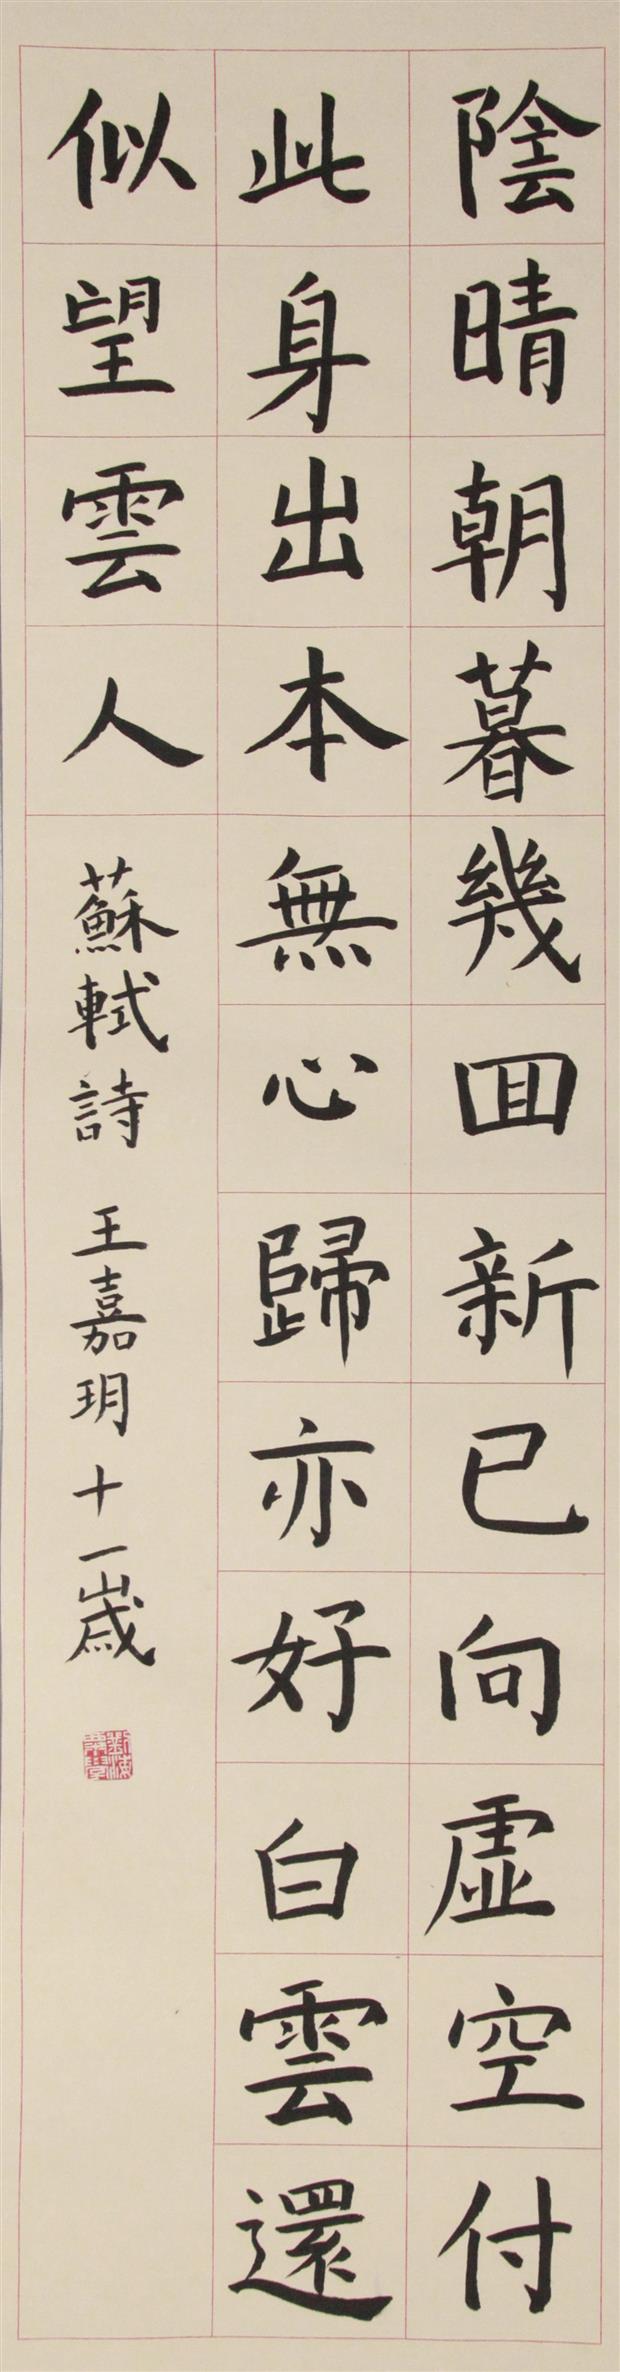 陰晴朝暮幾回新已向虛空付
此身出本無心歸亦好白雲還
似望雲人
蘇軾詩 王嘉玥十一歲